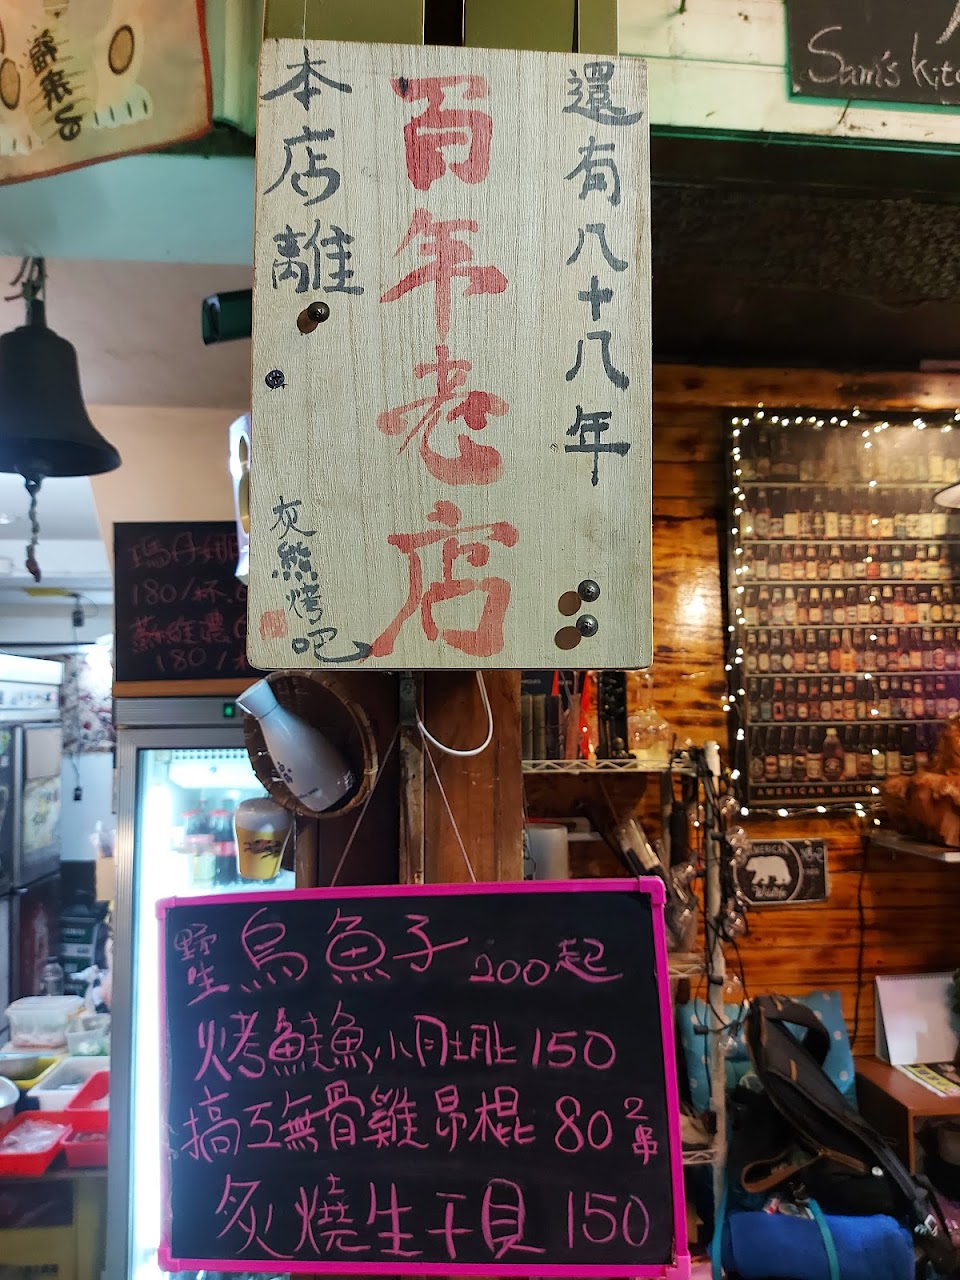 本店離
百年老店
還有八十八年
灰熊烤吧
Sam's Kitc
瑪丹娜
180/杯
蘇維濃
180/
AMERICAN MICR
野生烏魚子 200起
烤鮭魚小肚肚 150
搞工無骨雞昂棍 80 2串
炙燒生干貝 150